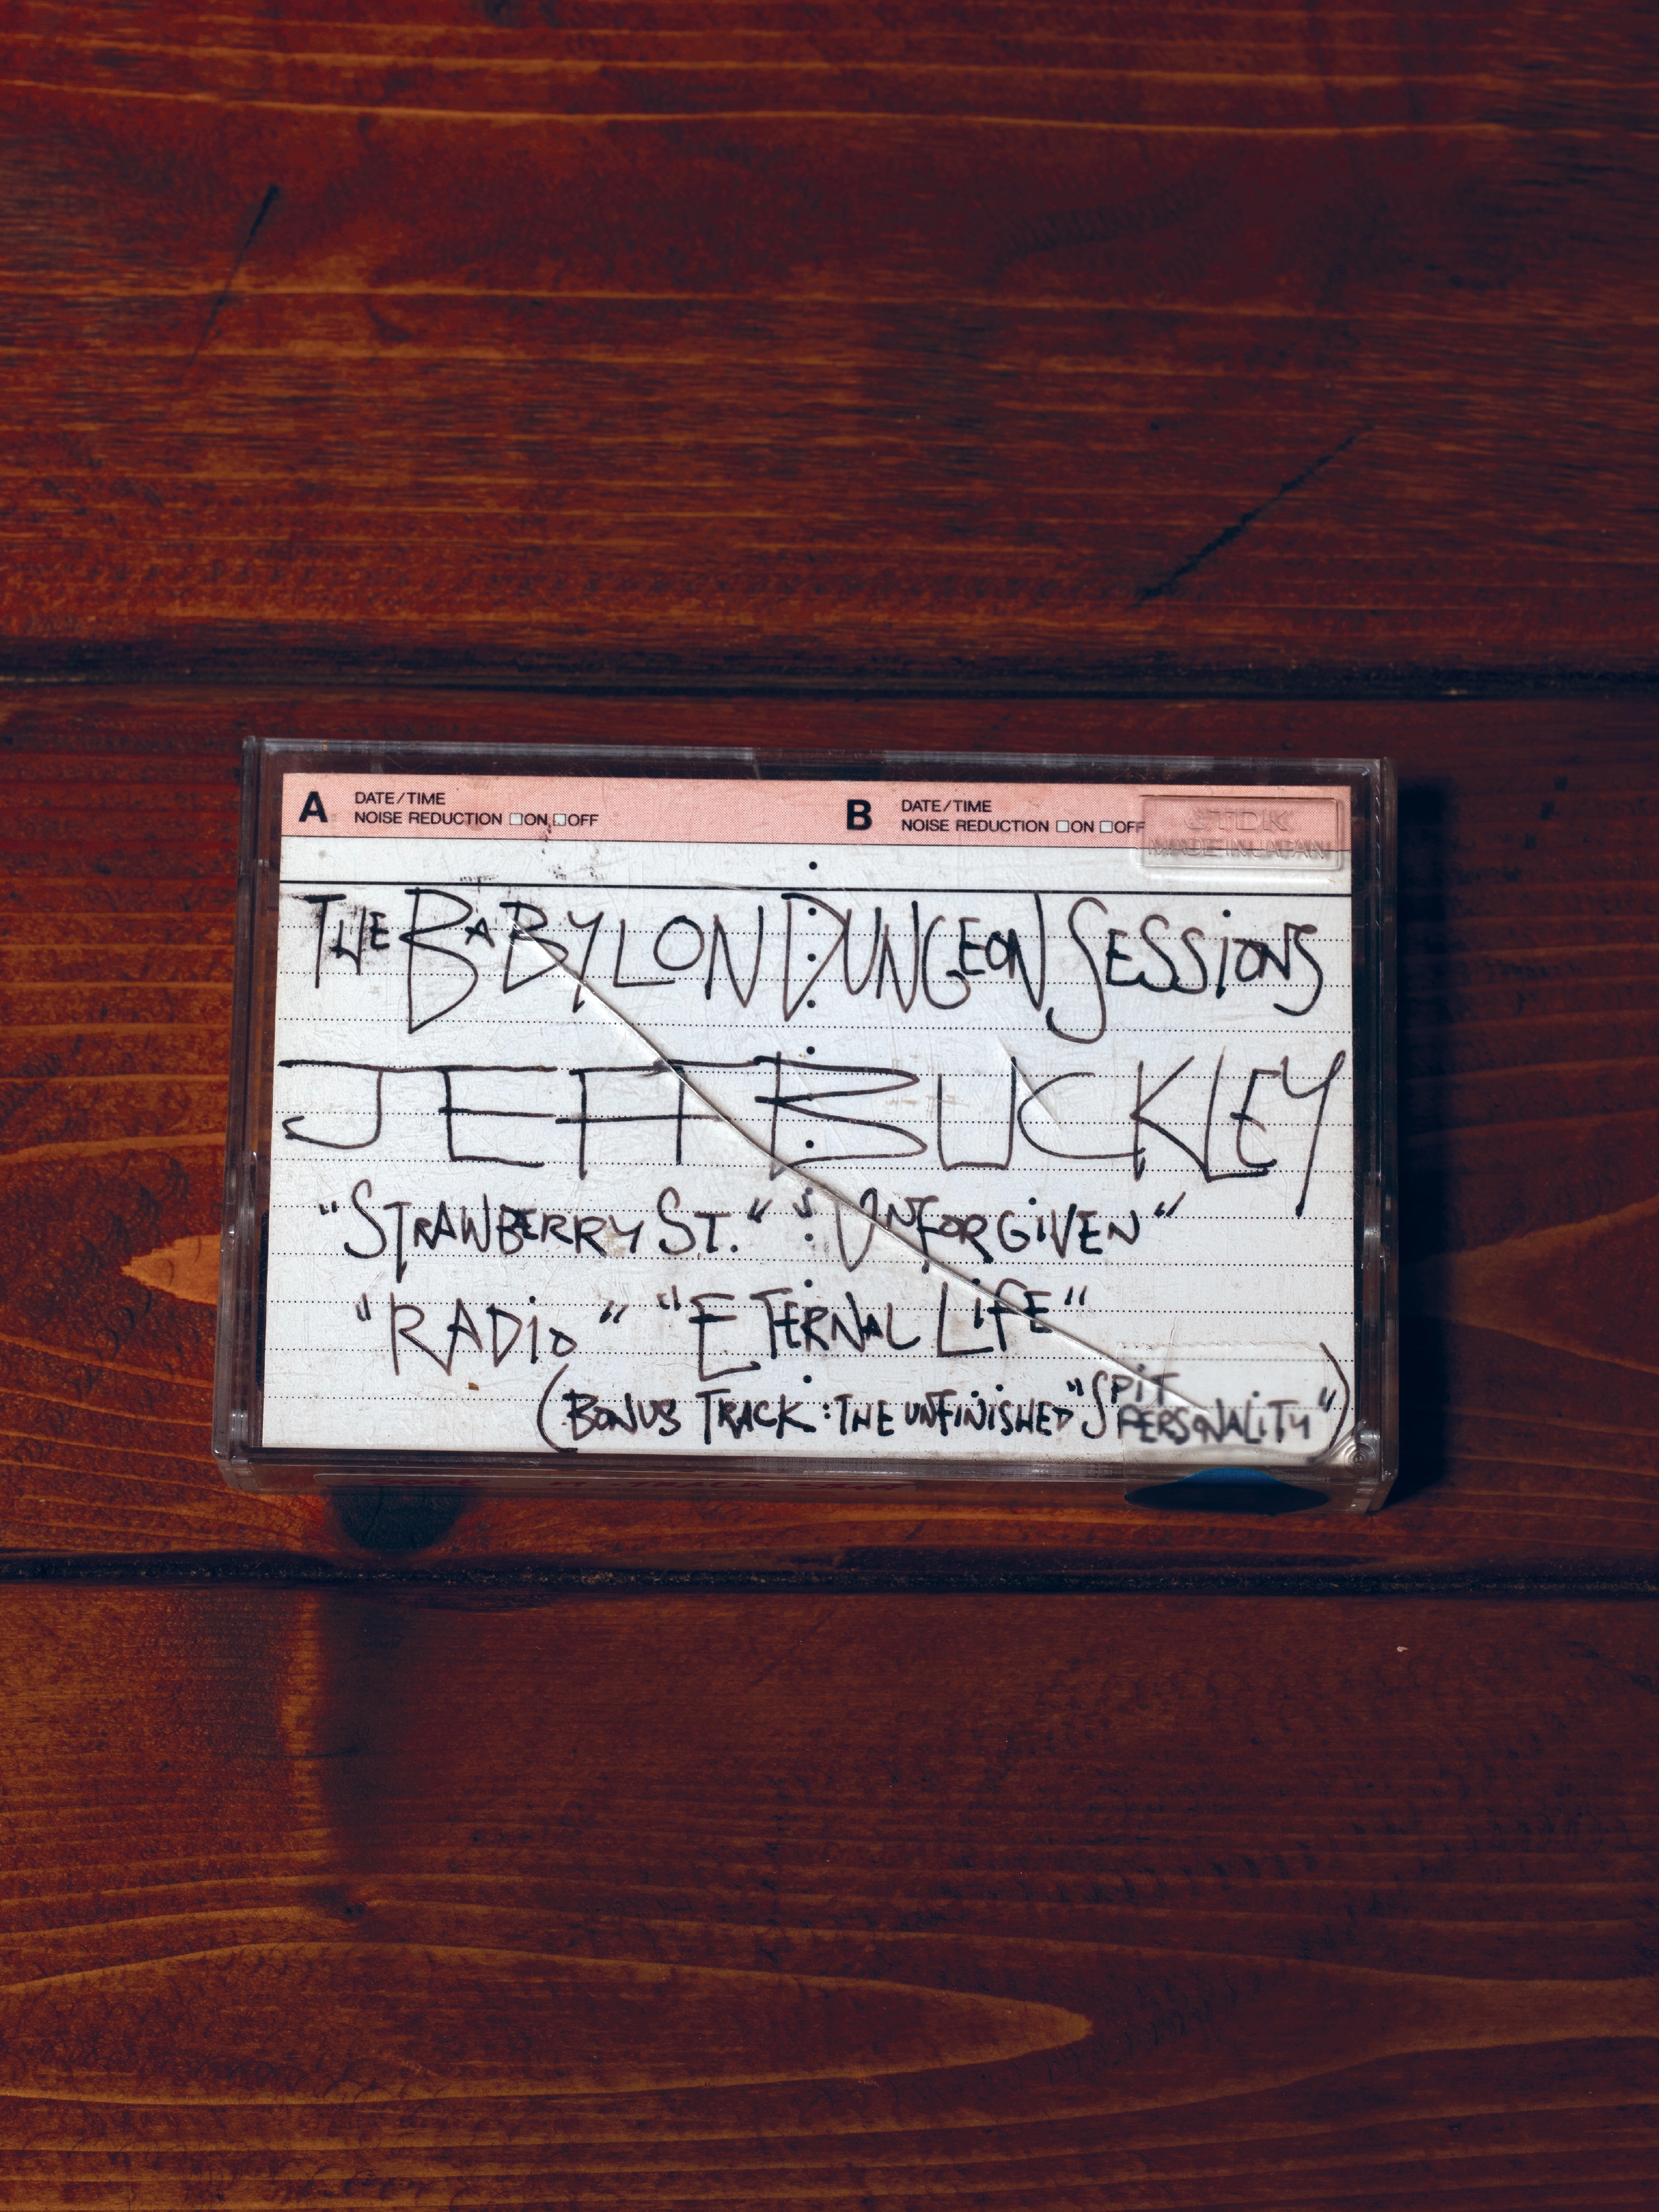 A DATE/TIME B DATE/TIME
NOISE REDUCTION □ON □OFF NOISE REDUCTION □ON □OFF
TDK
MADE IN JAPAN
THE BABYLON DUNGEON SESSIONS
JEFF BUCKLEY
"STRAWBERRY ST." "UNFORGiVEN"
"RADio" "ETERNAL LiFE"
(BONUS TRACK: THE UNFiNiSHED "SPiT
PERSONALiTY")